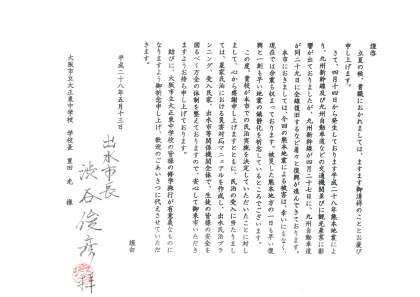 謹啓
立夏の候、貴職におかれましては、ますます御清祥のこととお慶び
申し上げます。
さて、四月十四日から発生しております平成二十八年熊本地震によ
り、九州新幹線及び九州自動車道などの交通機関並びに観光産業に影
響が出ておりましたが、九州新幹線が四月二十七日に、九州自動車道
が同二十九日に全線復旧するなど着々と復興が進んできております。
本市におきましては、今回の熊本地震による被害は、幸いにもなく、
現在では余震も収まっております。被災した熊本地方の一日も早い復
興と一刻も早い地震の鎮静化を祈念しているところでございます。
この度、貴校が本市での民泊実施を決定していただいたことに対し
まして、心から感謝申し上げますとともに、民泊の受入に当たりまし
ては、農家民泊における災害対応マニュアルを作成し、出水民泊プラ
ンニング、受入民家、出水市等関係機関全体で、生徒の皆様の安全を
図るべく万全の体制を整えておりますので、安心して御来市いただき
ますようお待ち申し上げております。
結びに、大阪市立大正東中学校の皆様の修学旅行が有意義なものに
なりますよう御祈念申し上げ、歓迎のごあいさつに代えさせていただ
きます。
謹白
平成二十八年五月十三日
出水市長
渋谷俊彦
大阪市立大正東中学校 学校長 豊田 光 様